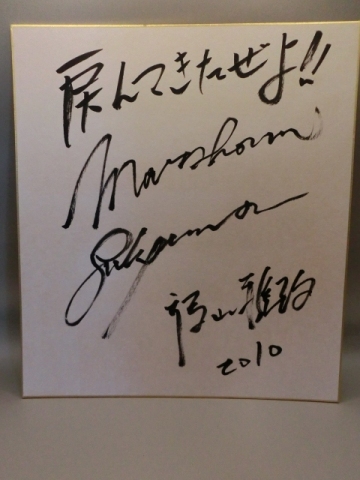 戻んてきたぜよ!!
Masaharu
Fukuyama
福山雅治
2010